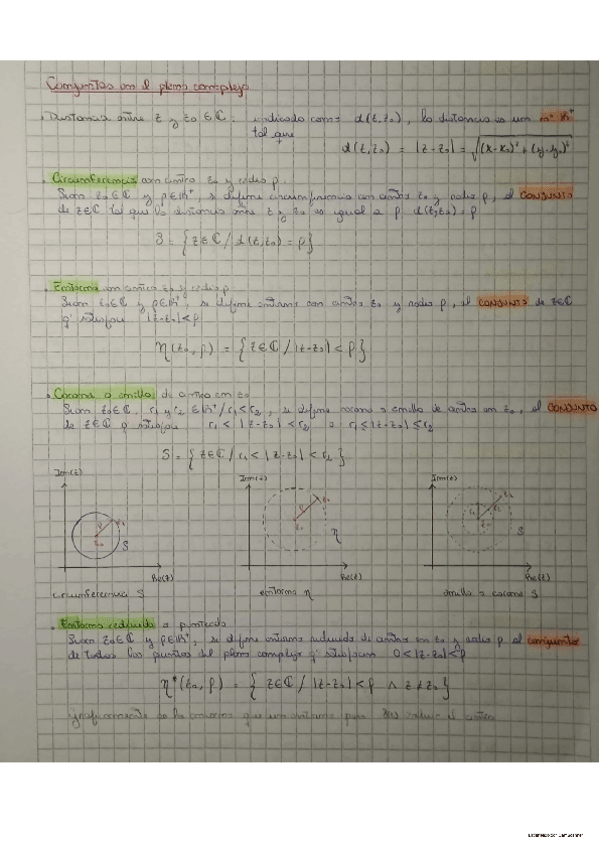 Conjuntos en el plano complejo
• Distancia entre z y z₀ ∈ ℂ: indicado como d(z,z₀), la distancia es un nº ℝ⁺
tal que
d(z,z₀) = |z-z₀| = √(x-x₀)²+(y-y₀)²
• Circunferencia con centro z₀ y radio ρ.
Sean z₀∈ℂ y ρ∈ℝ⁺, se define circunferencia con centro z₀ y radio ρ, al CONJUNTO
de z∈ℂ tal que la distancia entre z y z₀ es igual a ρ d(z,z₀)=ρ
S = {z∈ℂ / d(z,z₀) = ρ}
• Entorno con centro z₀ y radio ρ
Sean z₀∈ℂ y ρ∈ℝ⁺, se define entorno con centro z₀ y radio ρ, al CONJUNTO de z∈ℂ
q' |z-z₀|<ρ
η(z₀,ρ) = {z∈ℂ / |z-z₀|<ρ}
• Corona o anillo de centro en z₀
Sean z₀∈ℂ, r₁ y r₂ ∈ℝ⁺/r₁<r₂, se define corona o anillo de centro en z₀, al CONJUNTO
de z∈ℂ q r₁ < |z-z₀| < r₂ o r₁≤|z-z₀|≤r₂
S = {z∈ℂ / r₁ < |z-z₀| < r₂}
Im(z) Im(z) Im(z)
ρ z₀ S
ρ z₀ η
r₁ r₂ z₀ S
Re(z) Re(z) Re(z)
circunferencia S entorno η anillo o corona S
• Entorno reducido o punteado
Sean z₀∈ℂ y ρ∈ℝ⁺, se define entorno reducido de centro en z₀ y radio ρ al conjunto
de todos los puntos del plano complejo q' 0<|z-z₀|<ρ
η*(z₀,ρ) = {z∈ℂ / |z-z₀|<ρ ∧ z≠z₀}
gráficamente es lo que un entorno pero el centro